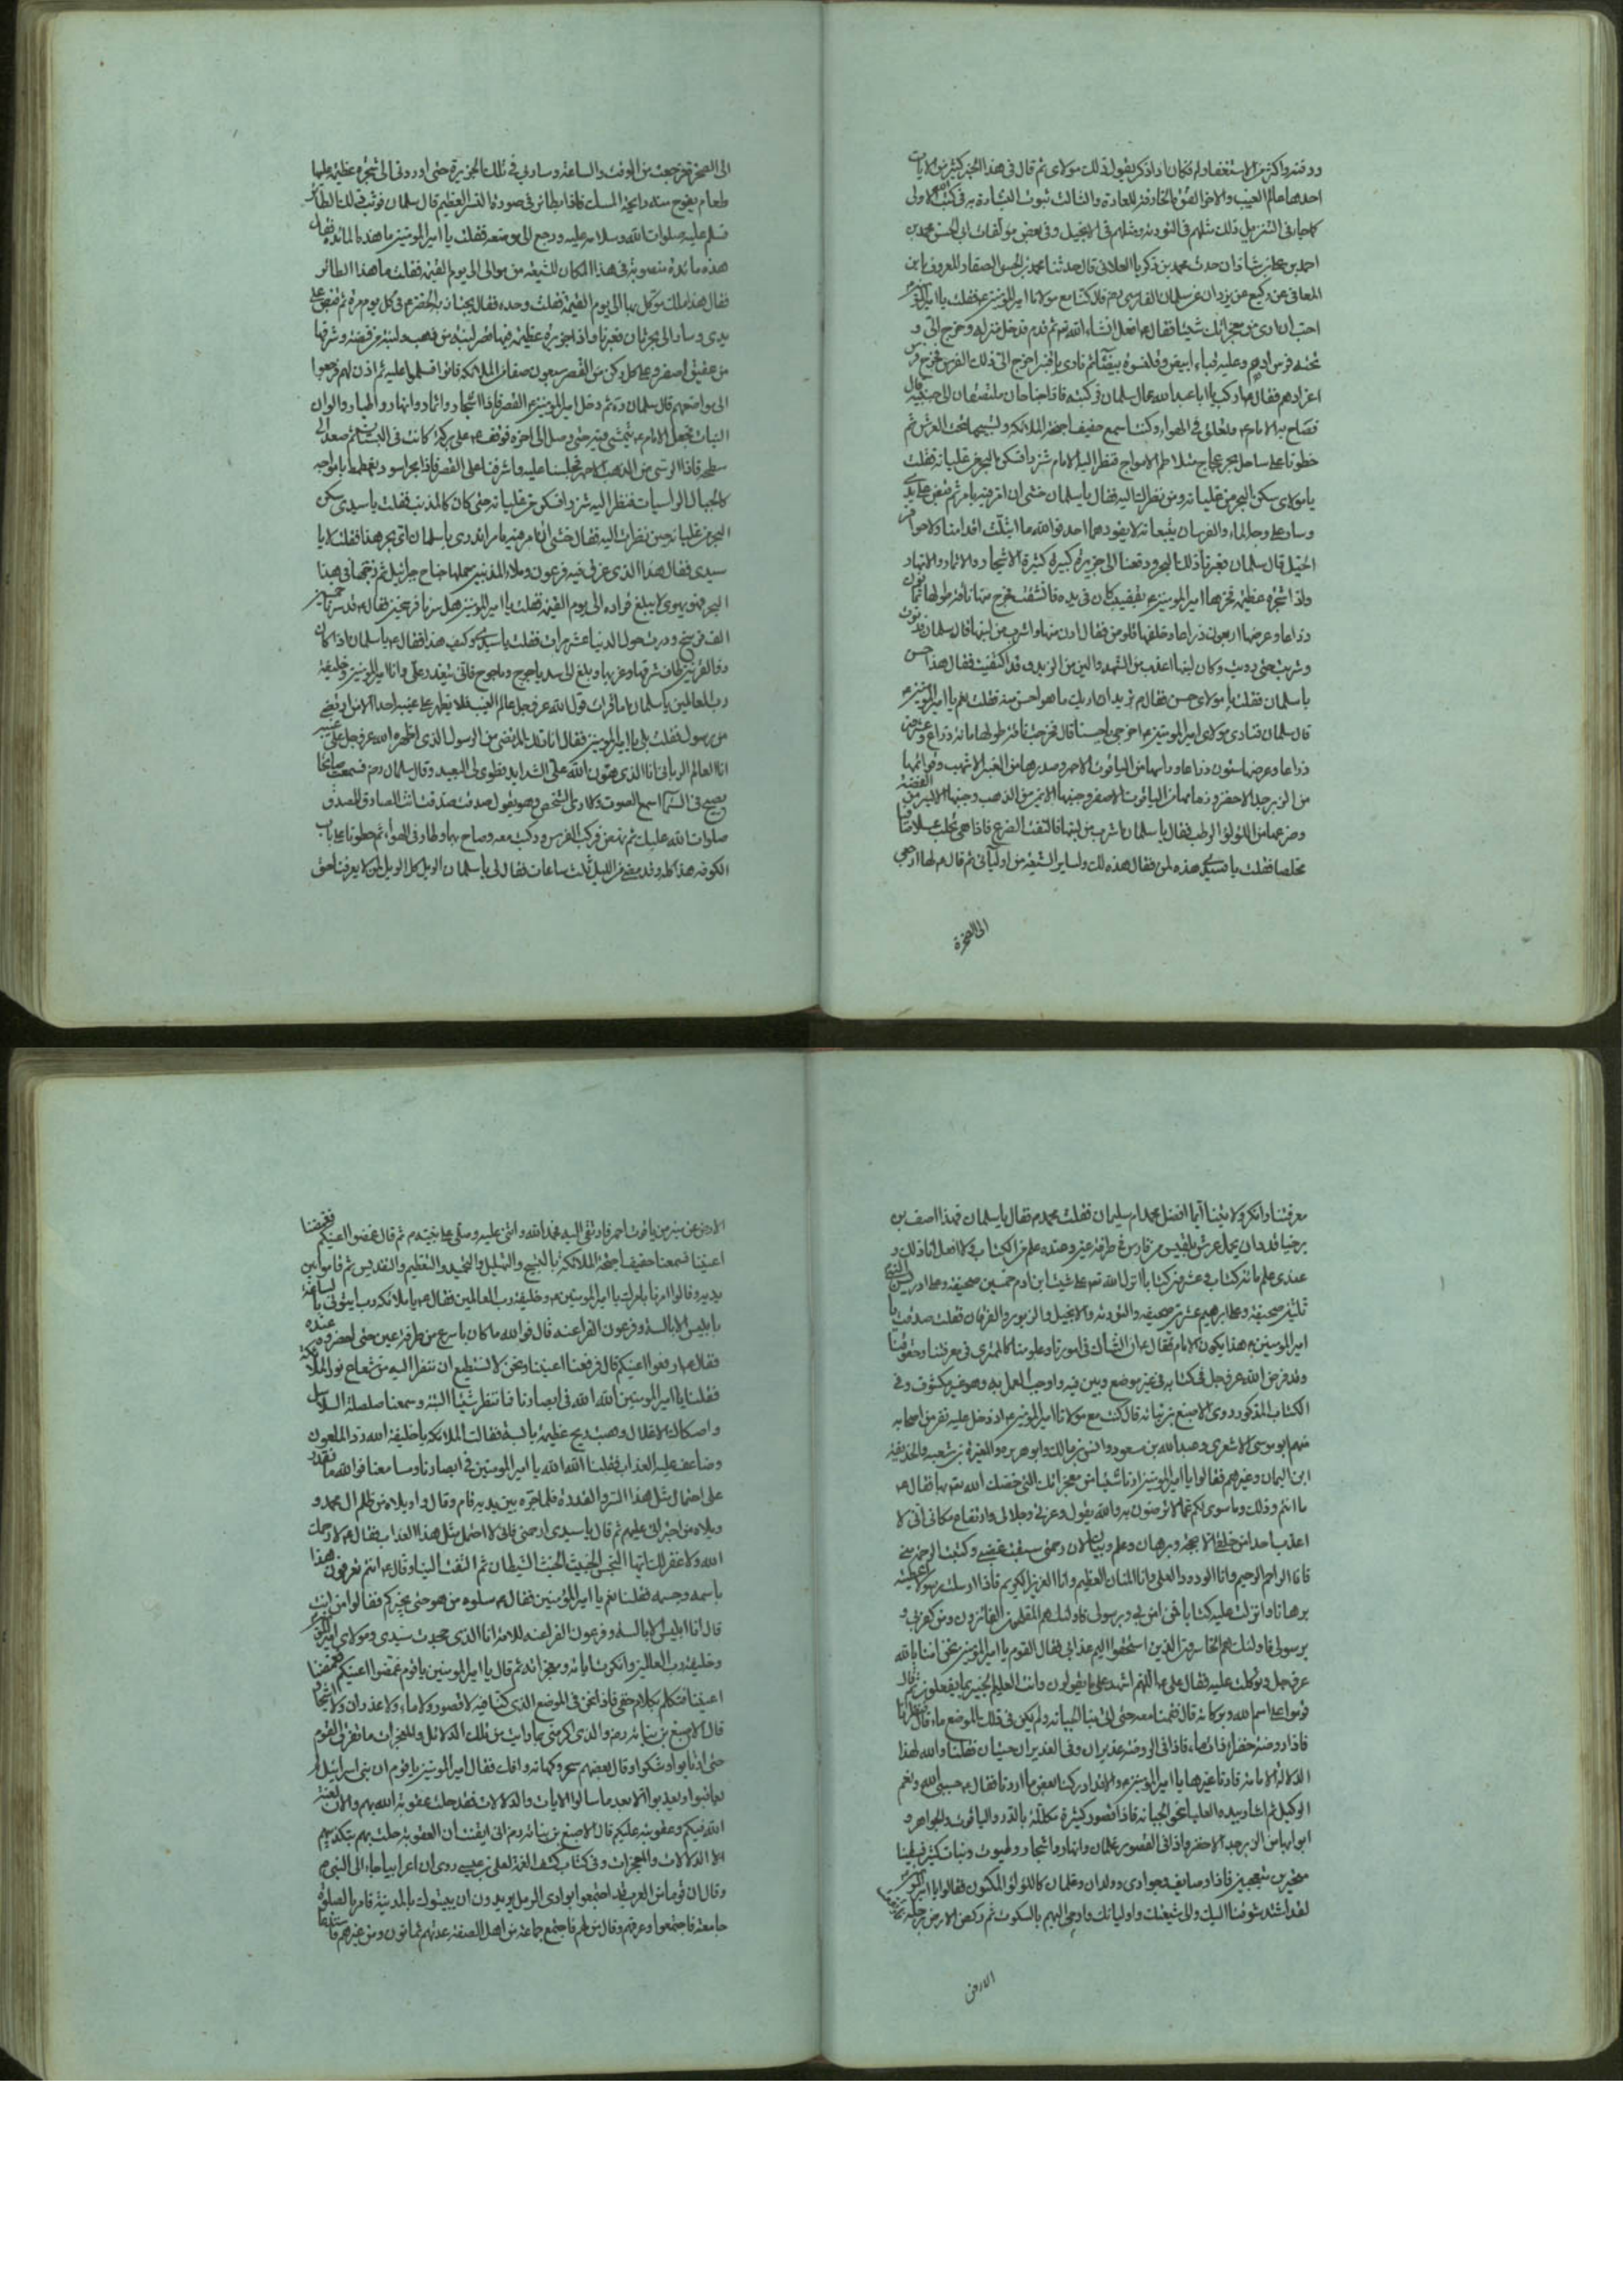 احدهما عالم الغيب والاخر الفوق الخارقة للعادة والثالث ثبوت الشارة به في كتب الله الاولى
احمد بن علي بن شاذان حدث محمد بن زكريا العلائي قال حدثنا محمد بن الحسن الصفار المعروف بابن
المعافى عن وكيع عن يزدان عن سلمان الفارسي رض قال كنا مع مولانا امير المؤمنين ع فقلت يا امير المؤمنين
احب ان ارى من معجزاتك شيئا فقال ع افعل انشاء الله تع ثم قدم فدخل منزله وخرج الى و
تحته فرس ادهم وعليه قباء ابيض وقلنسوة بيضاء ثم نادى يا قنبر اخرج الى ذلك الفرس فخرج فرس
اغر ادهم فقال ع اركب يا ابا عبد الله قال سلمان فركبته فاذا جناحان ملتصقان الى جنبيه قال
فصاح به الامام ع فتعلق في الهواء وكنت اسمع حفيف اجنحة الملائكة وتسبيحها تحت العرش ثم
خطونا على ساحل بحر عجاج متلاطم الامواج فنظر اليه الامام شزرا فسكن البحر من غليانه فقلت
يا مولاى سكن البحر من غليانه من نظرك اليه فقال يا سلمان خشى ان امر فيه بامر ثم قبض على يدي
وسار على وجه الماء والفرسان يتبعانه لا يقودهما احد فوالله ما ابتلت اقدامنا ولا حوافر
الخيل قال سلمان فعبرنا ذلك البحر ودفعنا الى جزيرة كبيرة كثيرة الاشجار والاثمار والانهار
واذا شجرة عظيمة فهزها امير المؤمنين ع بقضيب كان في يده فانشقت فخرج منها ناقة طولها ثمانون
ذراعا وعرضها اربعون ذراعا وخلفها قلوص فقال ادن منها واشرب من لبنها قال سلمان فدنوت
وشربت حتى رويت وكان لبنها اعذب من الشهد والين من الزبد وقد اكتفيت فقال هذا حسن
يا سلمان فقلت يا مولاى حسن فقال ع تريد ان اريك ما هو احسن منه فقلت نعم يا امير المؤمنين
قال سلمان فنادى مولاى امير المؤمنين ع اخرجى يا حسنا قال فخرجت ناقة طولها مائة وعشرون
ذراعا وعرضها ستون ذراعا وراسها من الياقوت الاحمر وصدرها من العنبر الاشهب وقوائمها
من الزبرجد الاخضر وزمامها من الياقوت الاصفر وجنبها الايمن من الذهب وجنبها الايسر من الفضة
وضرعها من اللؤلؤ الرطب فقال يا سلمان اشرب من لبنها فالتقمت الضرع فاذا هي تحلب عسلا صافيا
مخلصا فقلت يا سيدي هذه لمن فقال هذه لك ولساير الشيعة من اوليائى ثم قال ع لها ارجعى
الى الصخرة
الى الصخرة فرجعت من الوقت والساعة وسار بي في تلك الجزيرة حتى اوردني الى شجرة عظيمة عليها
طعام يفوح منه رايحة المسك فاذا بطائر في صورة النسر العظيم قال سلمان فوثب ذلك الطائر
فسلم عليه صلوات الله وسلامه عليه ورجع الى موضعه فقلت يا امير المؤمنين ما هذه المائدة فقال
هذه مائدة منصوبة في هذا المكان للشيعة من موالى الى يوم القيمة فقلت ما هذا الطائر
فقال هذا ملك موكل بها الى يوم القيمة فقلت وحده فقال يجتاز به الخضر ع في كل يوم مرة ثم قبض على
يدى وسار الى بحر ثان فعبرنا واذا جزيرة عظيمة فيها قصر لبنة من ذهب ولبنة من فضة وشرفها
من عقيق اصفر وعلى كل ركن من القصر سبعون صفا من الملائكة فاتوا فسلموا عليه ثم اذن لهم فرجعوا
الى مواضعهم قال سلمان ره ثم دخل امير المؤمنين ع القصر فاذا اشجار واثمار وانهار واطيار والوان
النبات فجعل الامام ع يتمشى فيه حتى وصل الى اخره فوقف ع على بركة كانت في البستان ثم صعد الى
سطحه فاذا كرسى من الذهب الاحمر فجلس عليه واشرفنا على القصر فاذا بحر اسود يغطمط بامواجه
كالجبال الراسيات فنظر اليه شزرا فسكن من غليانه حتى كان كالمذنب فقلت يا سيدى سكن
البحر من غليانه حين نظرت اليه فقال خشى ان امر فيه بامر اتدرى يا سلمان اى بحر هذا فقلت لا يا
سيدى فقال هذا الذى غرق فيه فرعون وملاؤه المذنبة حملها جناح جبرائيل ثم زجها في هذا
البحر فهو يهوى لا يبلغ قراره الى يوم القيمة فقلت يا امير المؤمنين هل سرنا فرسخين فقال ع قد سرنا خمسين
الف فرسخ ودرت حول الدنيا عشر مرات فقلت يا سيدي كيف هذا فقال ع يا سلمان اذا كان
ذو القرنين طاف شرقها وغربها وبلغ الى سد ياجوج وماجوج فانى يتعذر على وانا امير المؤمنين وخليفة
رب العالمين يا سلمان اما قرات قول الله عز وجل عالم الغيب فلا يظهر على غيبه احدا الا من ارتضى
من رسول فقلت بلى يا امير المؤمنين فقال انا ذلك المرتضى من الرسول الذى اظهره الله عز وجل على غيبه
انا العالم الربانى انا الذى هون الله على الشدايد فطوى لى البعيد وقال سلمان رض فسمعت صائحا
يصيح في السماء اسمع الصوت ولا ارى الشخص وهو يقول صدقت صدقت انت الصادق المصدق
صلوات الله عليك ثم نهض فركب الفرس وركبت معه وصاح بهما وطار في الهواء ثم خطونا على باب
الكوفة هذا كله وقد مضى من الليل ثلث ساعات فقال لى يا سلمان الويل كل الويل لمن لا يعرفنا حق
معرفتنا وانكر ولايتنا ايما افضل محمد ام سليمان فقلت محمد ص فقال يا سلمان فهذا اصف بن
برخيا قدر ان يحمل عرش بلقيس من فارس في طرفة عين وعنده علم من الكتاب ولا افعل انا ذلك و
عندى علم مائة كتاب وعشرين كتابا انزل الله تعالى على شيث ابن ادم خمسين صحيفة وعلى ادريس النبي
ثلثين صحيفة وعلى ابراهيم عشرين صحيفة والتورية والانجيل والزبور والفرقان فقلت صدقت يا
امير المؤمنين ع هكذا يكون الامام فقال ع ان الشاك في امورنا وعلومنا كالممترى في معرفتنا وحقوقنا
وقد فرض الله عز وجل في كتابه في غير موضع وبين فيه ما وجب العمل به وهو غير مكشوف وفي
الكتاب المذكور روى الاصبغ بن نباته قال كنت مع مولانا امير المؤمنين ع اذ دخل عليه نفر من اصحابه
منهم ابو موسى الاشعرى وعبد الله بن مسعود وانس بن مالك وابو هريرة والمغيرة بن شعبة والحذيفة
ابن اليمان وغيرهم فقالوا يا امير المؤمنين ارنا شيئا من معجزاتك التى خصك الله تع بها فقال ع
ما انتم وذلك وما سؤالكم عما لا ترضون به والله يقول وعزتى وجلالى وارتفاع مكانى انى لا
اعذب احدا من خلقى الا بحجة وبرهان وعلم وبيان لان رحمتى سبقت غضبى وكتبت الرحمة على
فانا الراحم الرحيم وانا الودود العلى وانا المنان العظيم وانا العزيز الكريم فاذا ارسلت رسولا اعطيته
برهانا وانزلت عليه كتابا فمن امن بى وبرسولى فاولئك هم المفلحون الفائزون ومن كفر بى و
برسولى فاولئك هم الخاسرون الذين استحقوا اليم عذابى فقال القوم يا امير المؤمنين نحن امنا بالله
عز وجل وتوكلت عليه فقال على ع اللهم اشهد على ما يقولون وانت العليم الخبير بما يفعلون ثم قال
قوموا على اسم الله وبركاته قال فقمنا معه حتى اتى بنا الجبانة ولم يكن في ذلك الموضع ماء قال فنظرنا
فاذا روضة خضراء ذات ماء فاذا في الروضة غديران وفي الغديران حيتان فقلنا والله لهذا
الدلالة الامامة فارنا غيرها يا امير المؤمنين ع والا قد ادركنا بعض ما اردنا فقال ع حسبى الله ونعم
الوكيل ثم اشار بيده العليا نحو الجبانة فاذا قصور كثيرة مكللة بالدر والياقوت والجواهر و
ابوابها من الزبرجد الاخضر واذا في القصور غلمان وانهار واشجار وطيور ونبات كثير فبقينا
متحيرين متعجبين فاذا وصايف وجوارى وولدان وغلمان كاللؤلؤ المكنون فقالوا يا امير المؤمنين
لقد اشتد شوقنا اليك والى شيعتك واوليائك واوحى اليهم بالسكوت ثم ركض الارض برجله
الارض
الارض عن منبر من ياقوت احمر فارتقى اليه فحمد الله واثنى عليه وصلى على نبيه ص ثم قال غمضوا اعينكم فغمضنا
اعيننا فسمعنا حفيف اجنحة الملائكة بالتسبيح والتهليل والتحميد والتعظيم والتقديس ثم قاموا بين
يديه وقالوا امرنا بامرك يا امير المؤمنين ع وخليفة رب العالمين فقال ع يا ملائكة رب ايتونى الساعة
بابليس الابالسة وفرعون الفراعنة قال فوالله ما كان باسرع من طرفة عين حتى احضروه عنده
فقال ع ارفعوا اعينكم قال فرفعنا اعيننا ونحن لا نستطيع ان ننظر اليه من شعاع نور الملائكة
فقلنا يا امير المؤمنين الله الله في ابصارنا فما ننظر شيئا البتة وسمعنا صلصلة السلاسل
واصكاك الاغلال وهبت ريح عظيمة فقالت الملائكة يا خليفة الله زد الملعون
وضاعف عليه العذاب فقلنا الله الله يا امير المؤمنين في ابصارنا ومسامعنا فوالله ما نقدر
على احتمال مثل هذا السر والقدرة فلما جره بين يديه قام وقال واويلاه من ظلم ال محمد و
ويلاه من اجترائى عليهم ثم قال يا سيدى ارحمنى فانى لا احتمل مثل هذا العذاب فقال ع لا رحمك
الله ولا غفر لك ايها النجس الخبيث الخبث الشيطان ثم التفت الينا وقال ع انتم تعرفون هذا
باسمه وجسمه فقلنا نعم يا امير المؤمنين فقال ع سلوه من هو حتى يخبركم فقالوا من انت
قال انا ابليس الابالسة وفرعون الفراعنة الامة انا الذى جحدت سيدى ومولاى امير المؤمنين
وخليفة رب العالمين وانكرت اياته ومعجزاته ثم قال يا امير المؤمنين يا قوم غمضوا اعينكم فغمضنا
اعيننا فتكلم بكلام خفى فاذا نحن في الموضع الذى كنا فيه لا قصور ولا ماء ولا غدران ولا اشجار
قال الاصبغ بن نباته رض والذى اكرمنى بما رايت من تلك الدلائل والمعجزات ما تفرق القوم
حتى ارتابوا وشكوا وقال بعضهم سحر وكهانة وافك فقال امير المؤمنين يا قوم ان بنى اسرائيل لم
يعاقبوا ويعذبوا الا بعد ما سالوا الايات والدلالات فقد حلت عقوبة الله بهم والان لعنة
الله فيكم وعقوبته عليكم قال الاصبغ بن نباته رض انى ايقنت ان العقوبة حلت بهم بتكذيبهم
الا الدلالات والمعجزات وفي كتاب كشف الغمة لعلى بن عيسى روى ان اعرابيا جاء الى النبى ص
وقال ان قوما من العرب قد اجتمعوا بوادى الرمل يريدون ان يبيتوك بالمدينة فامر بالصلوة
جامعة فاجتمعوا وعرفهم وقال من لهم فاجتمع جماعة من اهل الصفة عدتهم ثمانون ومن غيرهم